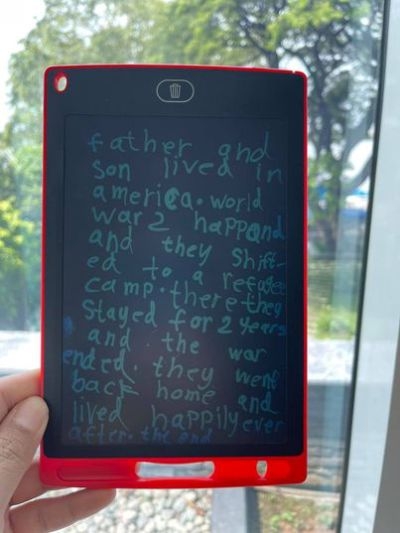 father and
son lived in
america. world
war 2 happand
and they shift-
ed to a refugee
camp. there they
stayed for 2 years
and the war
ended. they went
back home and
lived happily ever
after. the end